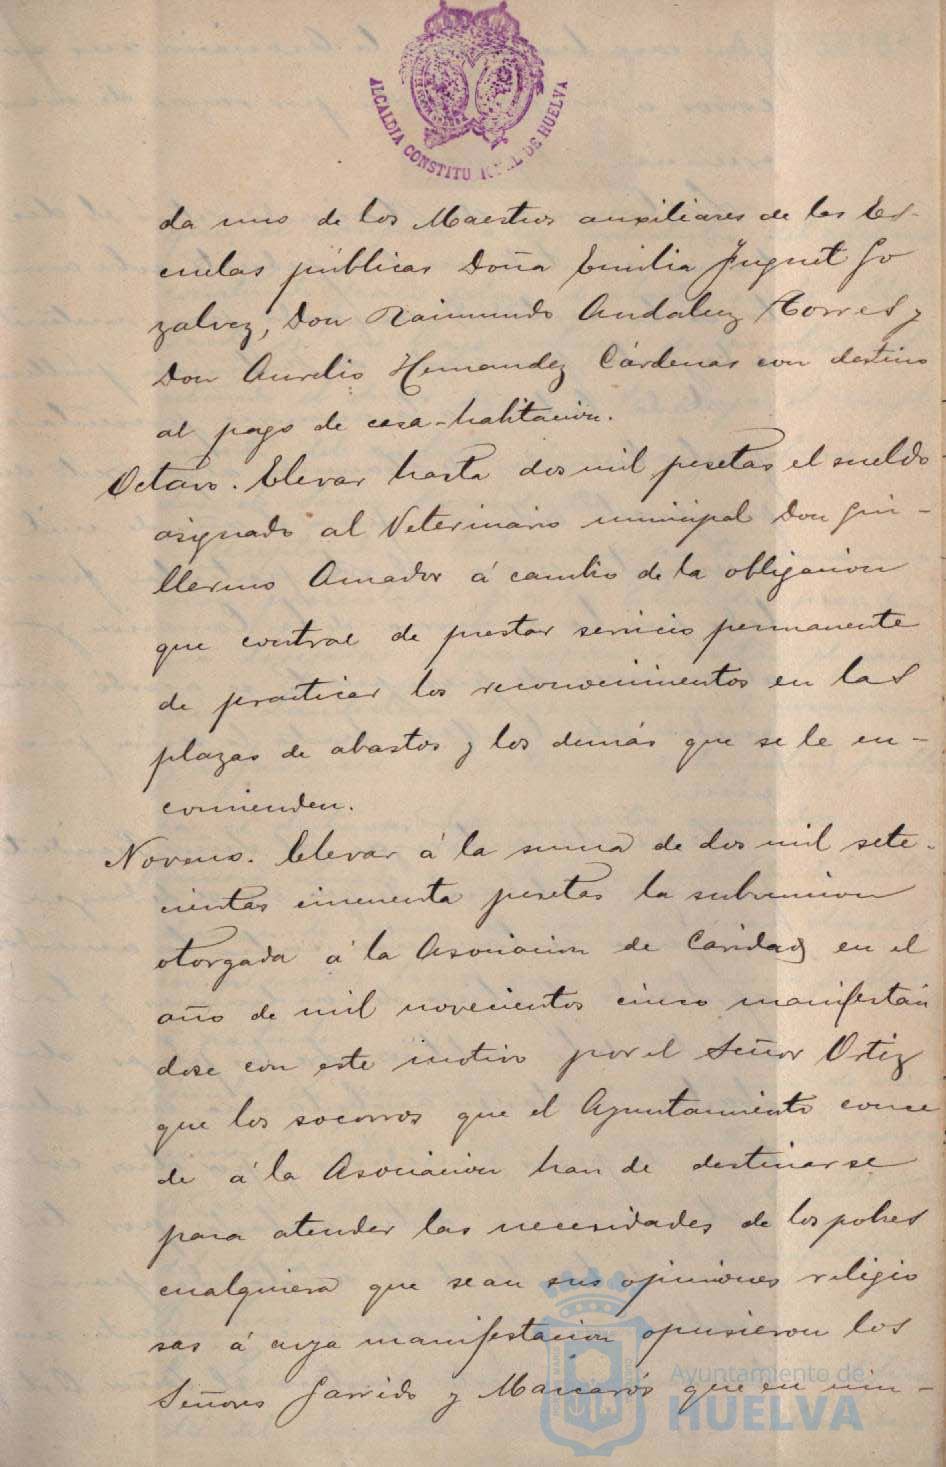 ALCALDIA CONSTITUCIONAL DE HUELVA
da uno de los Maestros auxiliares de las Es-
cuelas públicas Doña Emilia Juguet Go
zalvez, Don Raimundo Andaluz Torres y
Don Aurelio Hernandez Cárdenas con destino
al pago de casa-habitacion.
Octavo. Elevar hasta dos mil pesetas el sueldo
asignado al Veterinario municipal Don Gui-
llermo Amador á cambio de la obligacion
que contrae de prestar servicio permanente
de practicar los reconocimientos en las
plazas de abastos y los demás que se le en-
comienden.
Noveno. Elevar á la suma de dos mil sete-
cientas cincuenta pesetas la subvencion
otorgada á la Asociacion de Caridad en el
año de mil novecientos cinco manifestán
dose con este motivo por el Señor Ortiz
que los socorros que el Ayuntamiento conce
de á la Asociacion han de destinarse
para atender las necesidades de los pobres
cualquiera que sean sus opiniones religio
sas á cuya manifestacion opusieron los
Señores Garrido y Mascarós que en nin-
Ayuntamiento de
HUELVA